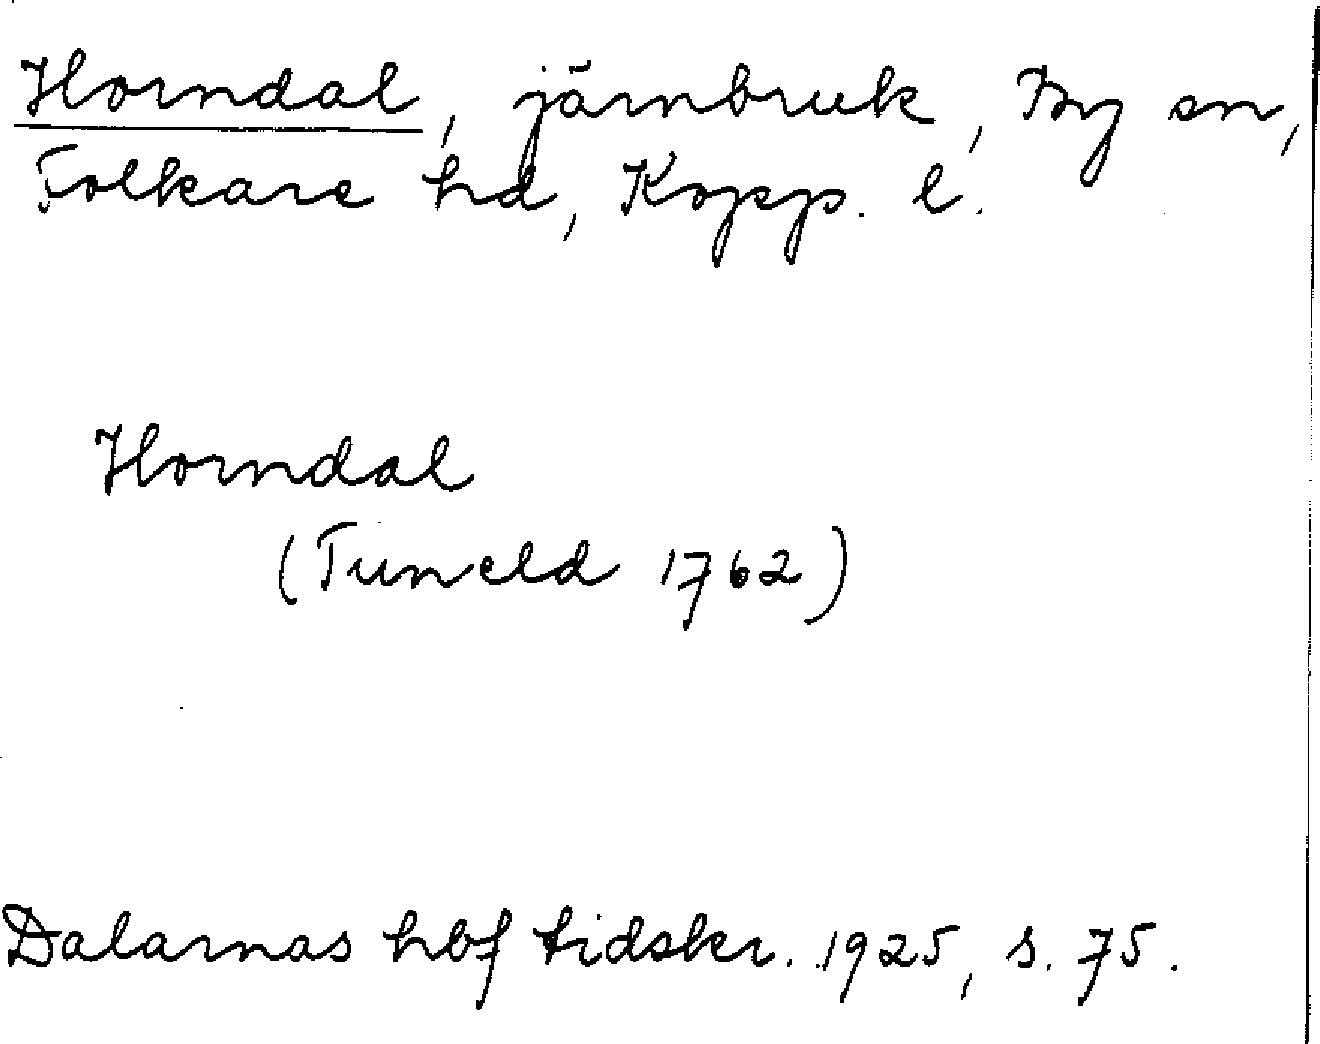 Horndal, järnbruk, By sn,
Folkare hd, Kopp. l.
Horndal
(Tuneld 1762)
Dalarnas hbf tidskr. 1925, s. 75.